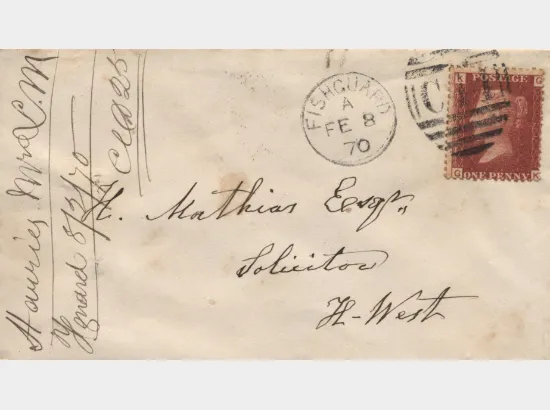 FISHGUARD
A
FE 8
70
K G
POSTAGE
ONE PENNY
G K
Mathias Esqr
Solicitor
H-West
Harries Mrs C.M
8/2/70